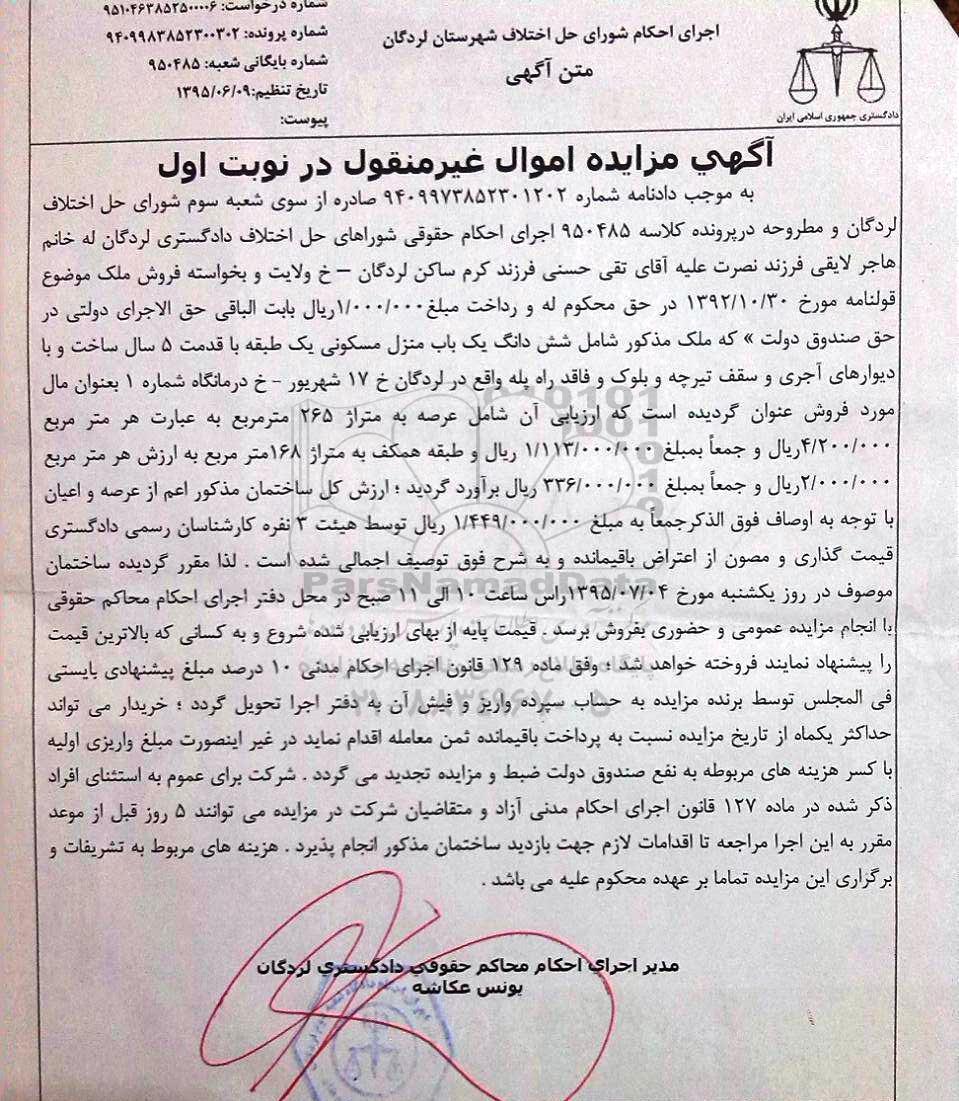 شماره درخواست: ۹۵۱۰۴۶۳۸۵۲۵۰۰۰۰۶
شماره پرونده: ۹۴۰۹۹۸۳۸۵۲۳۰۰۳۰۲
شماره بایگانی شعبه: ۹۵۰۴۸۵
تاریخ تنظیم: ۱۳۹۵/۰۶/۰۹
پیوست:
اجرای احکام شورای حل اختلاف شهرستان لردگان
متن آگهی
دادگستری جمهوری اسلامی ایران
آگهي مزايده اموال غيرمنقول در نوبت اول
به موجب دادنامه شماره ۹۴۰۹۹۷۳۸۵۲۳۰۱۲۰۲ صادره از سوی شعبه سوم شورای حل اختلاف
لردگان و مطروحه درپرونده کلاسه ۹۵۰۴۸۵ اجرای احکام حقوقی شوراهای حل اختلاف دادگستری لردگان له خانم
هاجر لایقی فرزند نصرت علیه آقای تقی حسنی فرزند کرم ساکن لردگان – خ ولایت و بخواسته فروش ملک موضوع
قولنامه مورخ ۱۳۹۲/۱۰/۳۰ در حق محکوم له و رداخت مبلغ۱/۰۰۰/۰۰۰ریال بابت الباقی حق الاجرای دولتی در
حق صندوق دولت » که ملک مذکور شامل شش دانگ یک باب منزل مسکونی یک طبقه با قدمت ۵ سال ساخت و با
دیوارهای آجری و سقف تیرچه و بلوک و فاقد راه پله واقع در لردگان خ ۱۷ شهریور - خ درمانگاه شماره ۱ بعنوان مال
مورد فروش عنوان گردیده است که ارزیابی آن شامل عرصه به متراژ ۲۶۵ مترمربع به عبارت هر متر مربع
۴/۲۰۰/۰۰۰ریال و جمعاً بمبلغ ۱/۱۱۳/۰۰۰/۰۰۰ ریال و طبقه همکف به متراژ ۱۶۸متر مربع به ارزش هر متر مربع
۲/۰۰۰/۰۰۰ریال و جمعاً بمبلغ ۳۳۶/۰۰۰/۰۰۰ ریال برآورد گردید ؛ ارزش کل ساختمان مذکور اعم از عرصه و اعیان
با توجه به اوصاف فوق الذکرجمعاً به مبلغ ۱/۴۴۹/۰۰۰/۰۰۰ ریال توسط هیئت ۳ نفره کارشناسان رسمی دادگستری
قیمت گذاری و مصون از اعتراض باقیمانده و به شرح فوق توصیف اجمالی شده است . لذا مقرر گردیده ساختمان
موصوف در روز یکشنبه مورخ ۱۳۹۵/۰۷/۰۴راس ساعت ۱۰ الی ۱۱ صبح در محل دفتر اجرای احکام محاکم حقوقی
با انجام مزایده عمومی و حضوری بفروش برسد . قیمت پایه از بهای ارزیابی شده شروع و به کسانی که بالاترین قیمت
را پیشنهاد نمایند فروخته خواهد شد ؛ وفق ماده ۱۲۹ قانون اجرای احکام مدنی ۱۰ درصد مبلغ پیشنهادی بایستی
فی المجلس توسط برنده مزایده به حساب سپرده واریز و فیش آن به دفتر اجرا تحویل گردد ؛ خریدار می تواند
حداکثر یکماه از تاریخ مزایده نسبت به پرداخت باقیمانده ثمن معامله اقدام نماید در غیر اینصورت مبلغ واریزی اولیه
با کسر هزینه های مربوطه به نفع صندوق دولت ضبط و مزایده تجدید می گردد . شرکت برای عموم به استثنای افراد
ذکر شده در ماده ۱۲۷ قانون اجرای احکام مدنی آزاد و متقاضیان شرکت در مزایده می توانند ۵ روز قبل از موعد
مقرر به این اجرا مراجعه تا اقدامات لازم جهت بازدید ساختمان مذکور انجام پذیرد . هزینه های مربوط به تشریفات و
برگزاری این مزایده تماما بر عهده محکوم علیه می باشد .
مدير اجراي احكام محاكم حقوقي دادگستري لردگان
يونس عكاشه
ParsNamadData
۰۲۱-۸۸۳۴۹۶۷۰-۵